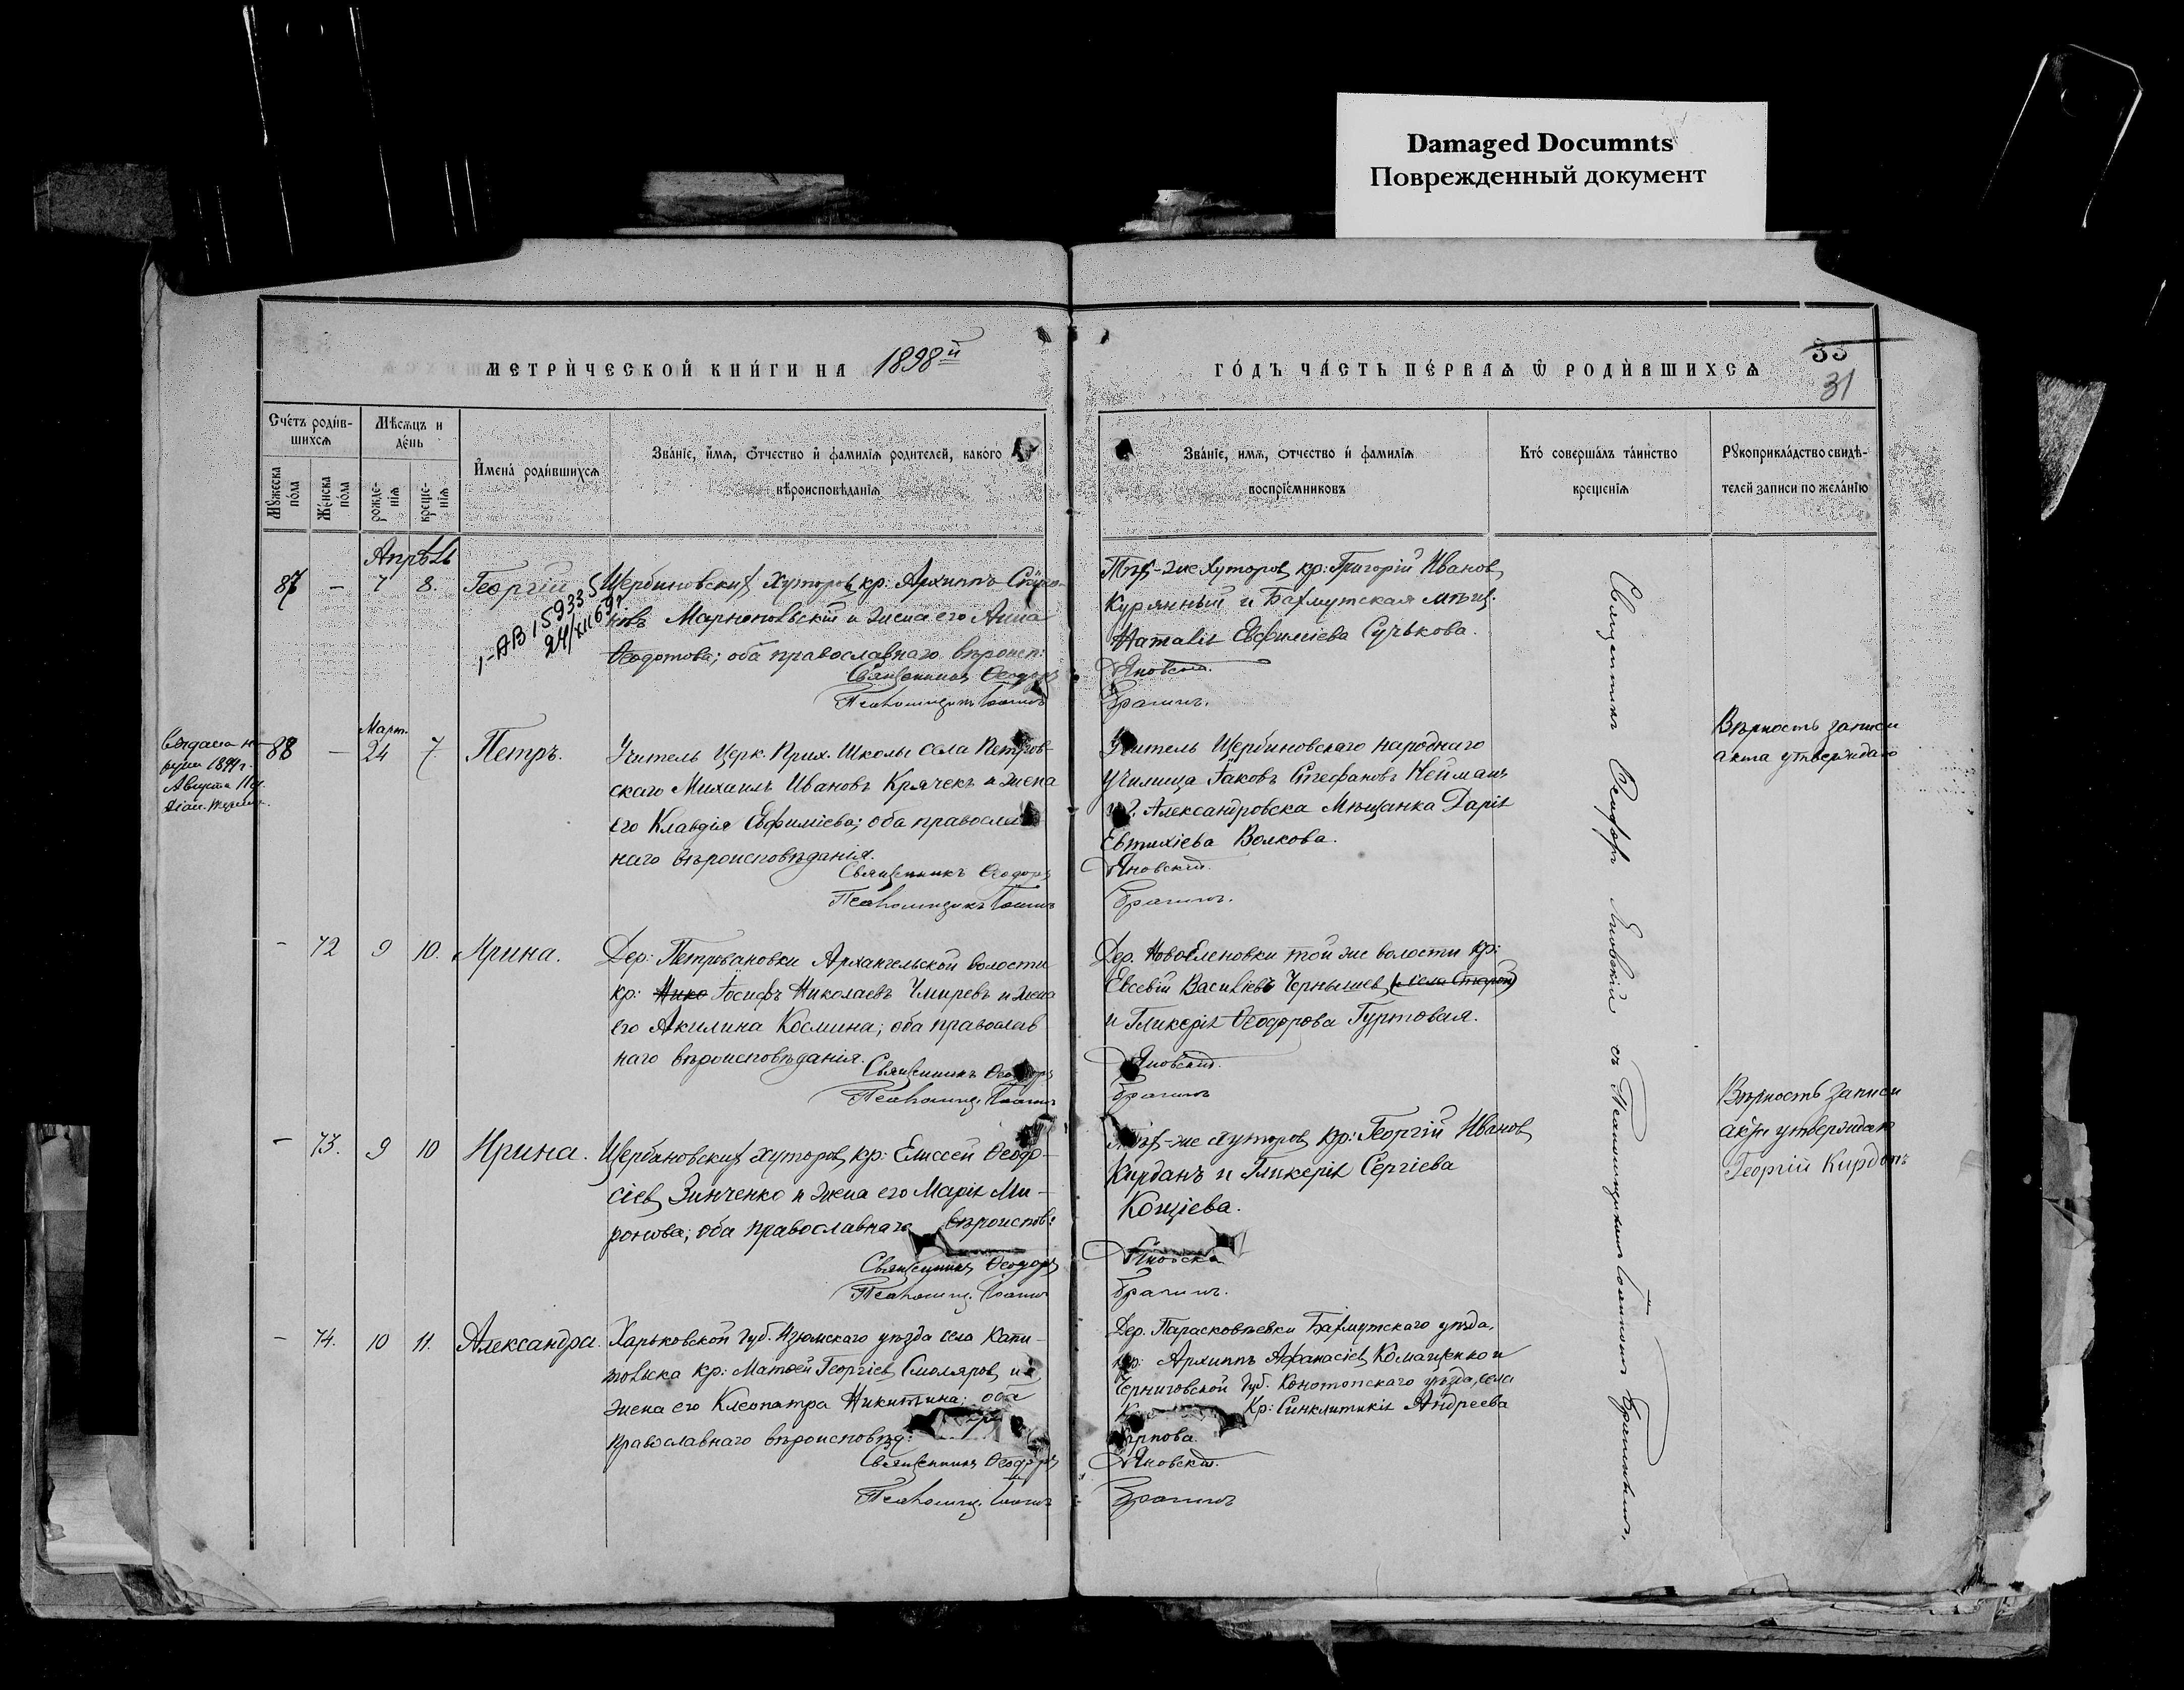 Damaged Documnts
Поврежденный документ
МЕТРИ́ЧЕСКОЙ КНИ́ГИ НА 1898й
ГО́ДЪ ЧА́СТЬ ПЕ́РВАѦ Ѿ РОДИ́ВШИХСѦ
33
31
Сче́тъ роди́в-
шихсѧ
Мѣсѧцъ и
де́нь
Мꙋ́жеска
по́ла
Же́нска
по́ла
рожде-
нїѧ
креще-
нїѧ
И҆мена̀ роди́вшихсѧ
Зва́нїе, и҆́мѧ, ѻ҆́тчество и҆ фамилїѧ родителей, какогѡ
вѣроисповѣданїѧ
Зва́нїе, имѧ, ѻтчество и҆ фамилїѧ
воспрїе́мниковъ
Кто̀ соверша́лъ та́инство
креще́нїѧ
Рꙋкоприкла́дство свидѣ́-
телей записи по жела́нїю
Апрѣль
87 – 7 8. Георгій
1-АВ 159335
24/XII 69г.
Щербиновскихъ Хуторовъ кр: Архиппъ
Марнопольскій и жена его Анна
Ѳеодотова; оба православнаго вѣроисп:
Священникъ Ѳеодоръ
Псаломщикъ Іоаннъ
Тѣхъ-же Хуторовъ кр: Григорій Ивановъ
Курянный и Бахмутская мѣщ.
Наталія Евфиміева Сучькова.
Яновскій.
Март.
88 – 24 7. Петръ.
1899 г.
Августа 11
Учитель Церк. Прих. Школы села Петров-
скаго Михаилъ Ивановъ Крячекъ и жена
его Клавдія Евфиміева; оба православ
наго вѣроисповѣданія.
Священникъ Ѳеодоръ
Псаломщикъ Іоаннъ
Учитель Щербиновскаго народнаго
училища Іаковъ Стефановъ Нейманъ
и г. Александровска Мѣщанка Дарія
Евтихіева Волкова.
Яновскій.
Вѣрность записи
акта утверждаю
– 72 9 10. Ирина.
Дер: Петровановки Архангельской волости
кр: Нико Іосифъ Николаевъ Чмиревъ и жена
его Акилина Космина; оба православ
наго вѣроисповѣданія.
Священникъ Ѳеодоръ
Псаломщ. Іоаннъ
Дер. НовоЕленовки той же волости кр:
Евсевій Васильевъ Чернышев (села Старой)
и Гликерія Ѳеодорова Гуртовая.
Яновскій.
– 73. 9 10 Ирина.
Щербиновскихъ Хуторовъ кр: Елиссей Ѳеодо-
сіевъ Зинченко и жена его Марія Ми-
ронова; оба православнаго вѣроиспов:
Священникъ Ѳеодоръ
Псаломщ. Іоаннъ
Тѣхъ-же Хуторовъ кр: Георгій Ивановъ
Кирданъ и Гликерія Сергіева
Кощіева.
Вѣрность записи
акта утверждаю
Георгій Кирданъ
– 74. 10 11. Александра.
Харьковской губ. Изюмскаго уѣзда села Капи-
тольска кр: Матѳей Георгіевъ Смоляровъ и
жена его Клеопатра Никитина; оба
православнаго вѣроисповѣд:
Священникъ Ѳеодоръ
Псаломщ. Іоаннъ
Дер. Парасковѣевки Бахмутскаго уѣзда,
кр: Архиппъ Афанасіевъ Комащенко и
Черниговской губ. Конотопскаго уѣзда, села
Кр: Синклитикія Андреева
Яновскій.
Священникъ Ѳеодоръ Яновскій съ Псаломщикомъ Іоанномъ